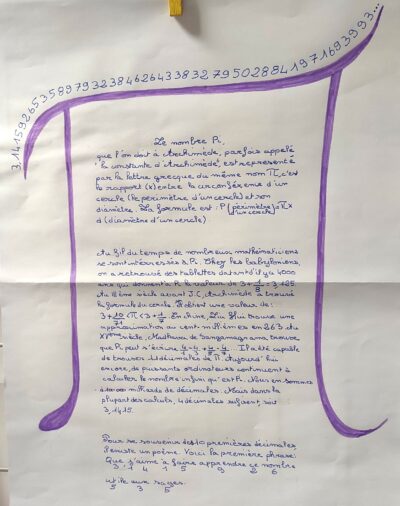 3,14159265358979323846264338327950288419716939 93...
Le nombre Pi,
que l'on doit à Archimède, parfois appelé
"la constante d'Archimède", est représenté
par la lettre grecque du même nom π, c'est
le rapport (x) entre la circonférence d'un
cercle (le périmètre d'un cercle) et son
diamètre. La formule est : P (périmètre d'un cercle) = π x
d (diamètre d'un cercle)
Au fil du temps de nombreux mathématiciens
se sont intéressés à Pi. Chez les babyloniens,
on a retrouvé des tablettes datant d'il y a 4000
ans qui donnent à Pi la valeur de 3+1/8 = 3,125.
Au siècle avant J.C, Archimède a trouvé
la formule du cercle. Il obtient une valeur de :
3+10/71 < π < 3+1/7. En chine, Liu Hui trouve une
approximation au cent-millièmes en 263. Au
XVème siècle, Madhava de Sangamagrama, trouve
que Pi peut s'écrire 4/1-4/3+4/5-4/7... Il a été capable
de trouver 11 décimales de π. Aujourd'hui
encore, de puissants ordinateurs continuent à
calculer le nombre infini qu'est Pi. Nous en sommes
milliards de décimales. Mais dans la
plupart des calculs, 4 décimales suffisent, soit
3,1415.
Pour se souvenir des 10 premières décimales,
il existe un poème. Voici la première phrase:
Que j'aime à faire apprendre ce nombre
3, 1 4 1 5 9 2 6
utile aux sages.
5 3 5